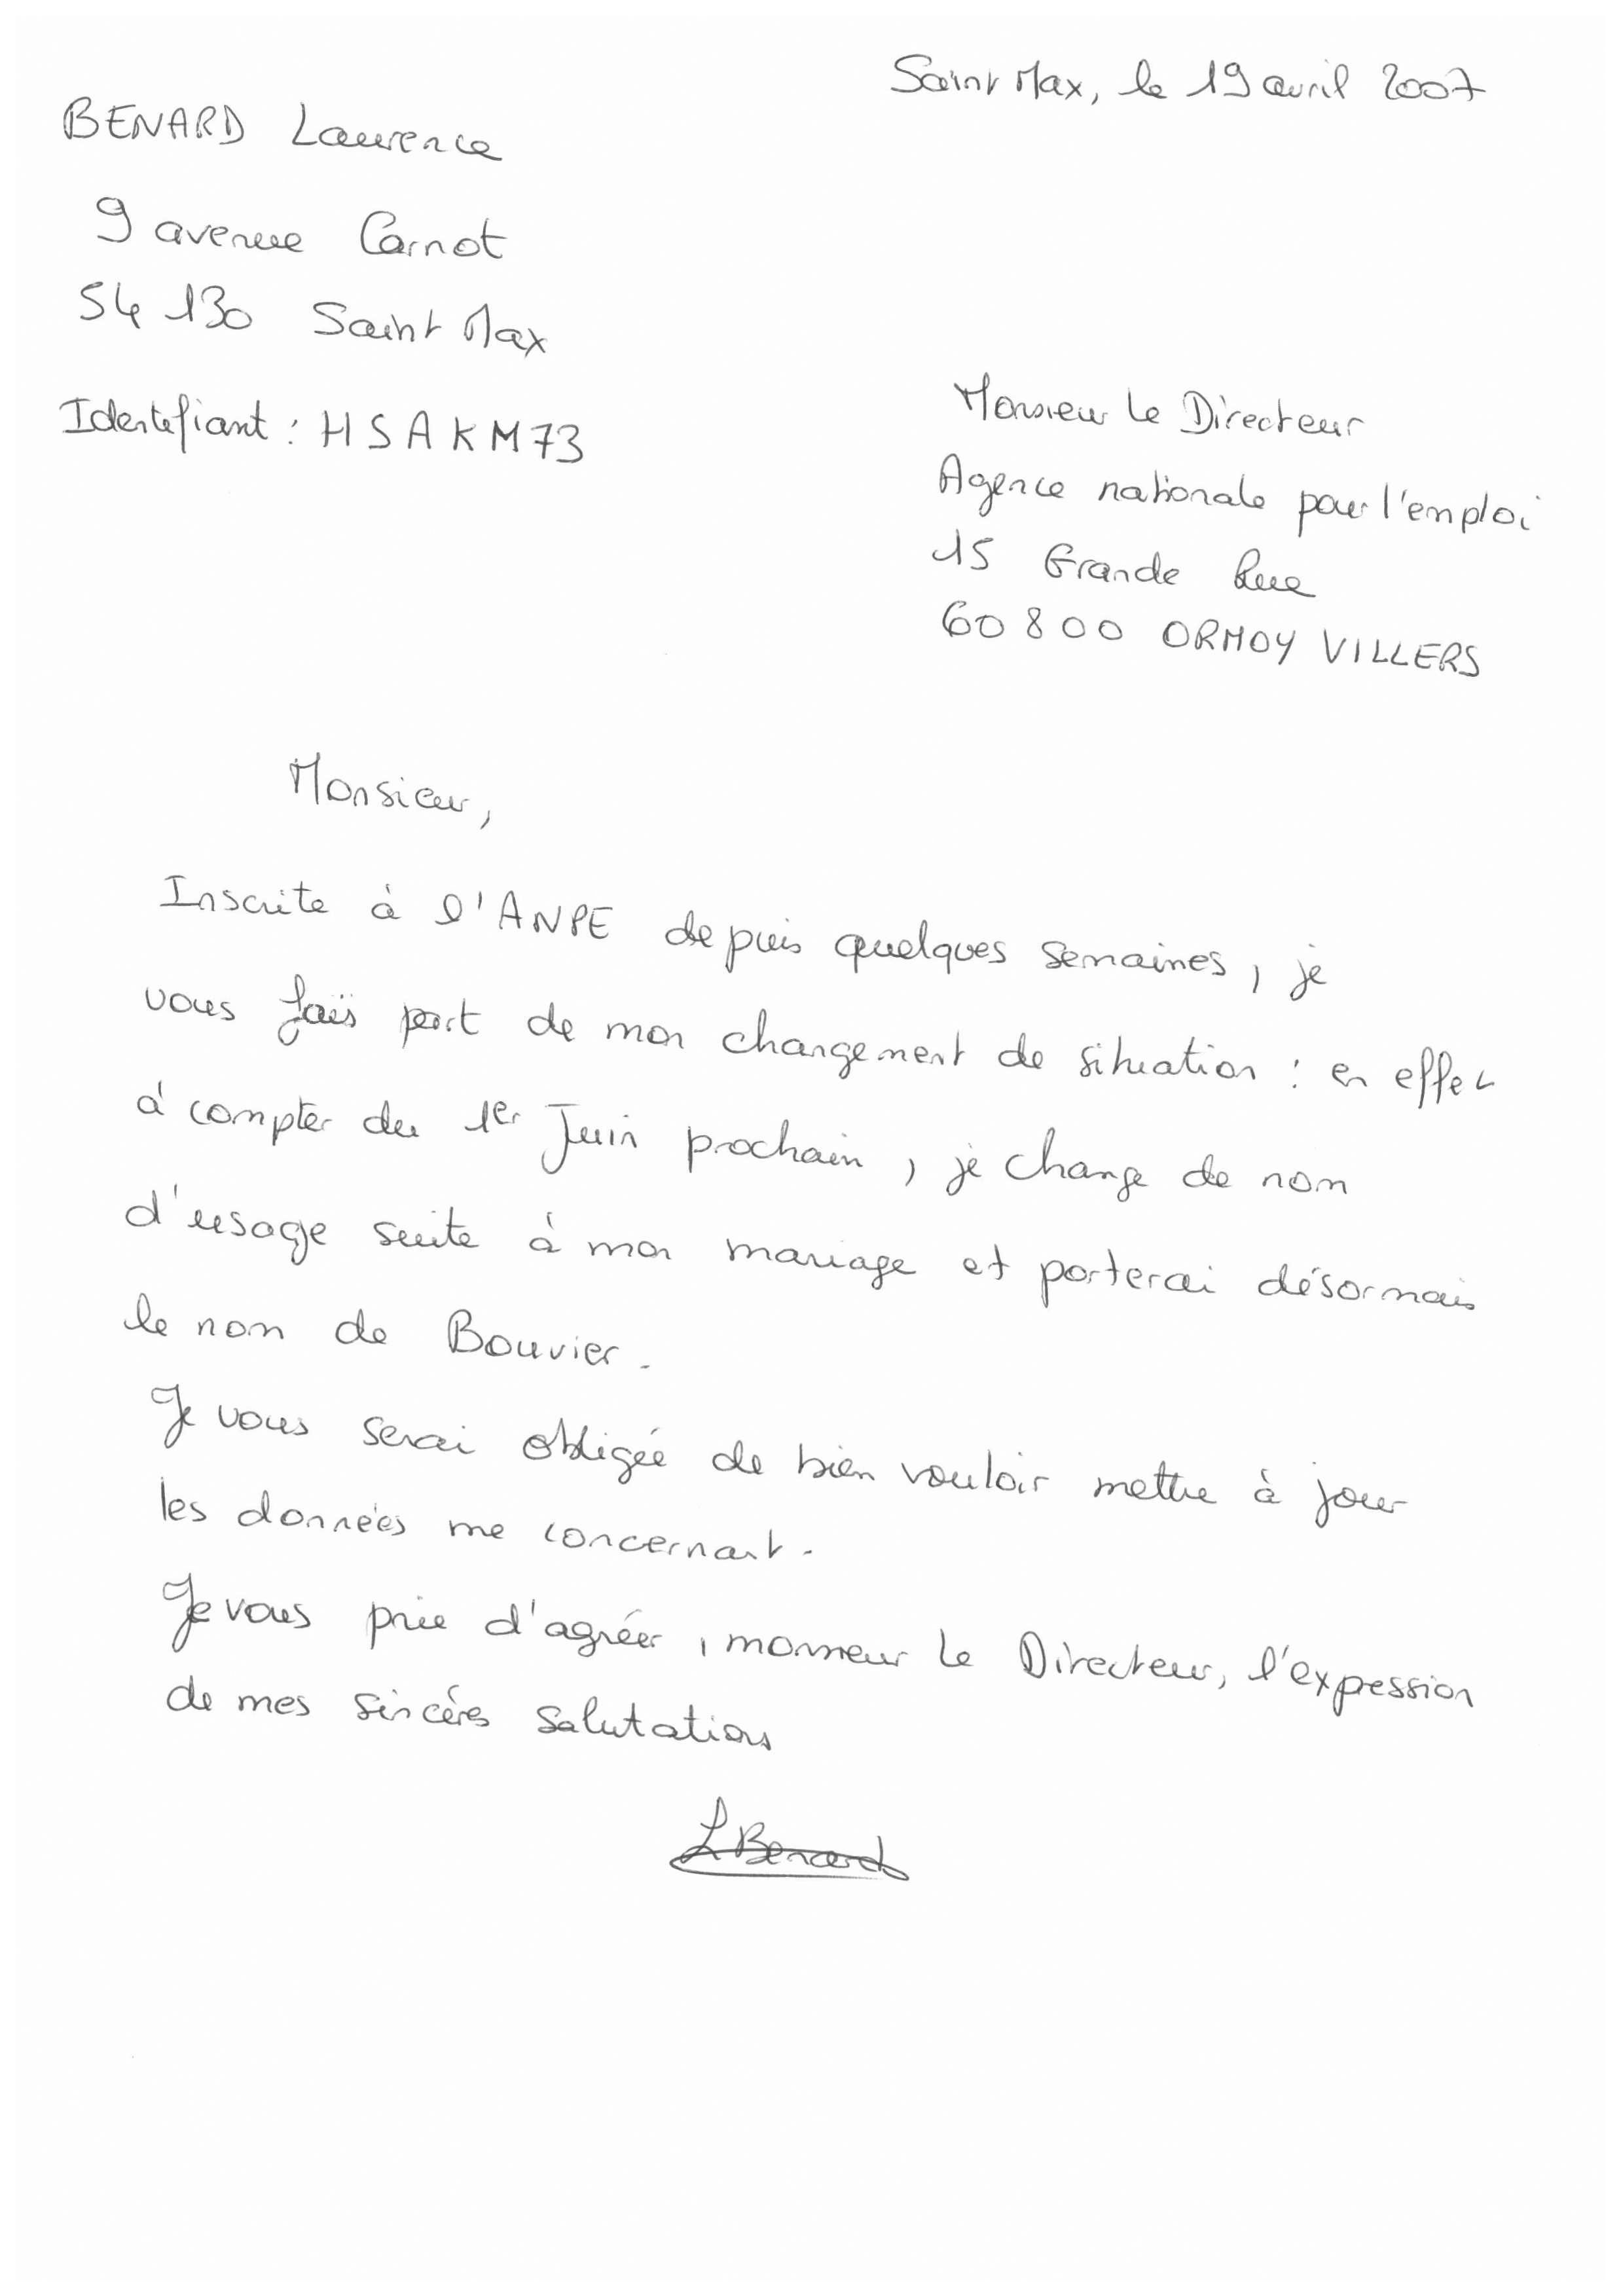 Saint Max, le 19 avril 2007
BENARD Laurence
9 avenue Carnot
54 130 Saint Max
Identifiant : HSAKM73
Monsieur le Directeur
Agence nationale pour l'emploi
15 Grande Rue
60 800 ORMOY VILLERS
Monsieur,
Inscrite à l'ANPE depuis quelques semaines, je
vous fais part de mon changement de situation : en effet
à compter du 1er Juin prochain, je change de nom
d'usage suite à mon mariage et porterai désormais
le nom de Bouvier.
Je vous serai obligée de bien vouloir mettre à jour
les données me concernant.
Je vous prie d'agréer, monsieur le Directeur, l'expression
de mes sincères salutations
L Benard